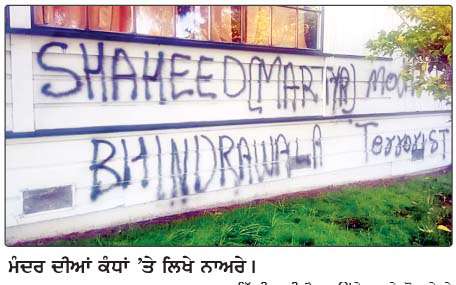 SHAHEED [MARTYR] MO
BHINDRAWALA TERRORIST
ਮੰਦਰ ਦੀਆਂ ਕੰਧਾਂ 'ਤੇ ਲਿਖੇ ਨਾਅਰੇ।